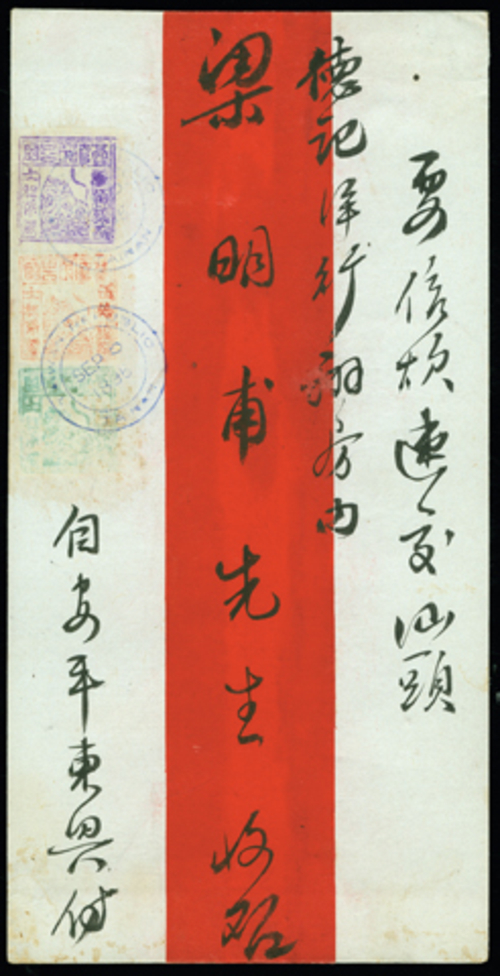 要信煩速交汕頭
德記洋行 房内
梁明甫先生收
自安平東興付